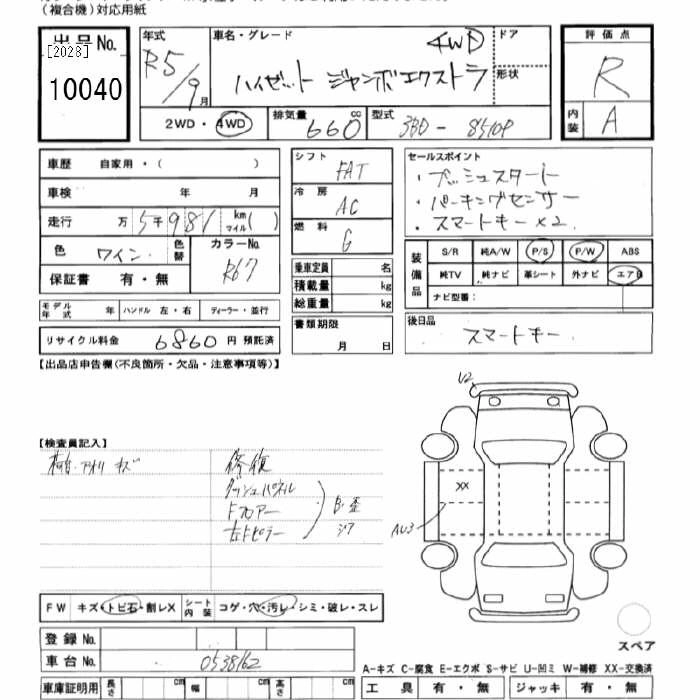 （複合機）対応用紙
出品No.
[2023]
10040
年式
R5/9月
車名・グレード
4WD
ハイゼット ジャンボエクストラ
ドア
形状
評価点
R
内装
A
2WD・4WD
排気量
660cc
型式
3BD - S510P
車歴 自家用・（ ）
車検 年 月
走行 万 5千981 km マイル( )
色 ワイン
色替
カラーNo.
R67
保証書 有・無
シフト
FAT
冷房
AC
燃料
G
乗車定員 名
積載量 kg
総重量 kg
セールスポイント
・プッシュスタート
・パーキングセンサー
・スマートキー×2
装備品
S/R 純A/W P/S P/W ABS
純TV 純ナビ 革シート 外ナビ エアB
ナビ型番：
モデル年式 年
ハンドル 左・右
ディーラー・並行
書類期限
月 日
後日品
スマートキー
リサイクル料金 6860 円 預託済
【出品店申告欄(不良箇所・欠品・注意事項等)】
U2
【検査員記入】
荷台・アオリ キズ
修復
ダッシュパネル
Fフロアー
左Fピラー
B・歪
シワ
XX
AU3
FW キズ・トビ石・割レX
シート内装
コゲ・穴・汚レ・シミ・破レ・スレ
登録No.
車台No.
0538162
スペア
A-キズ C-腐食 E-エクボ S-サビ U-凹ミ W-補修 XX-交換済
車庫証明用 長さ cm 幅 cm 高さ cm
工具 有・無 ジャッキ 有・無